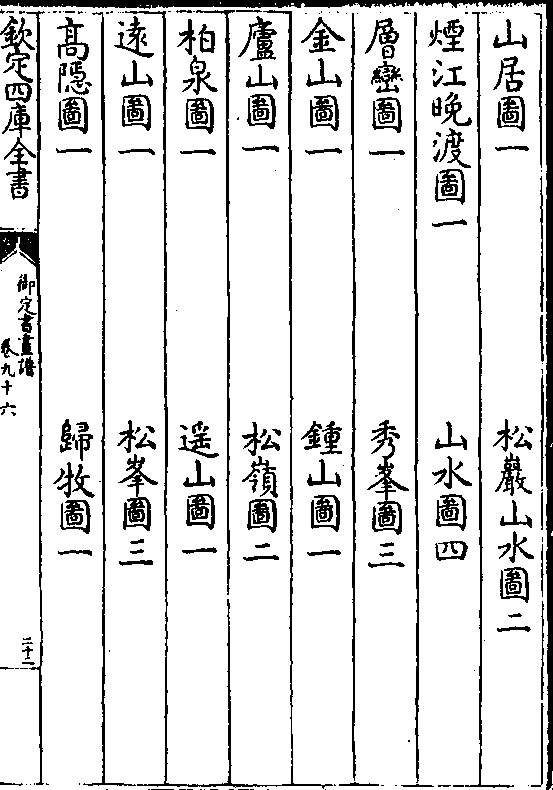 山居圖一　松巖山水圖二
煙江晚渡圖一　山水圖四
層巒圖一　秀峯圖三
金山圖一　鍾山圖一
廬山圖一　松嶺圖二
柏泉圖一　遥山圖一
遠山圖一　松峯圖三
高隱圖一　歸牧圖一
欽定四庫全書
御定書畫譜
卷九十六
二十二